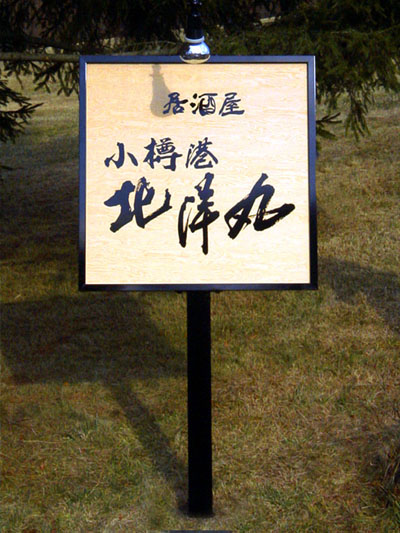 居酒屋
小樽港
北洋丸